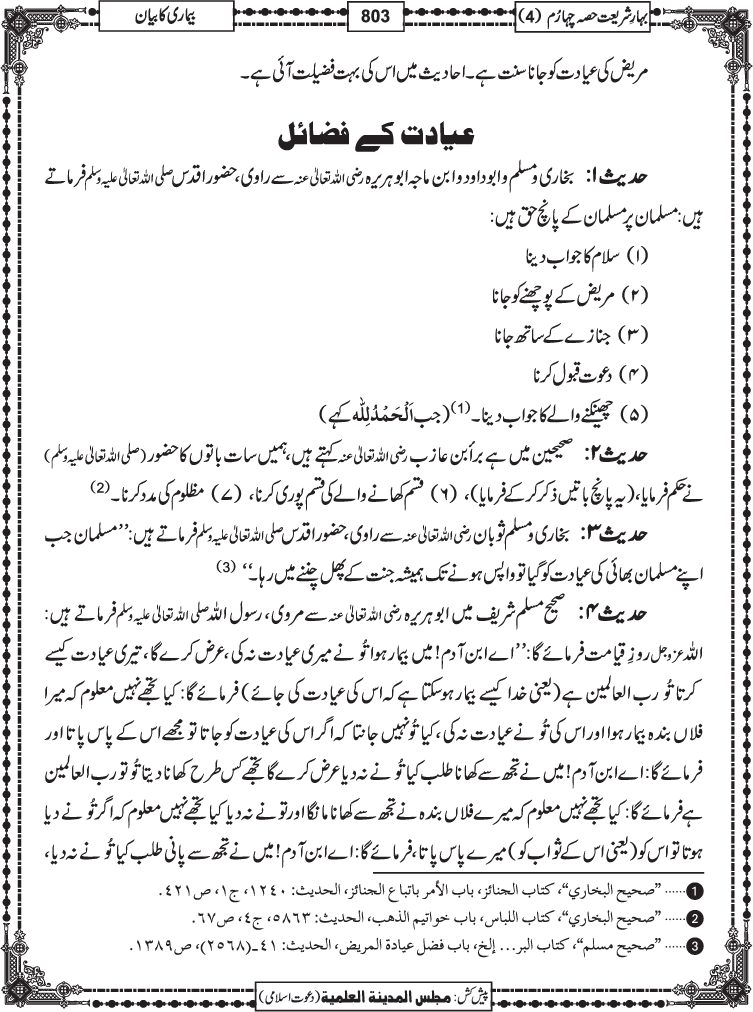 بہارِ شریعت حصہ چہارم (4)
803
بیماری کا بیان
مریض کی عیادت کو جانا سنت ہے۔ احادیث میں اس کی بہت فضیلت آئی ہے۔
عیادت کے فضائل
حدیث ۱: بخاری و مسلم و ابو داود و ابن ماجہ ابو ہریرہ رضی اللہ تعالیٰ عنہ سے راوی، حضور اقدس صلی اللہ تعالیٰ علیہ وسلم فرماتے
ہیں: مسلمان پر مسلمان کے پانچ حق ہیں:
(۱) سلام کا جواب دینا
(۲) مریض کے پوچھنے کو جانا
(۳) جنازے کے ساتھ جانا
(۴) دعوت قبول کرنا
(۵) چھینکنے والے کا جواب دینا۔(1) (جب اَلْحَمْدُلِلّٰه کہے)
حدیث ۲: صحیحین میں ہے برأ بن عازب رضی اللہ تعالیٰ عنہ کہتے ہیں، ہمیں سات باتوں کا حضور (صلی اللہ تعالیٰ علیہ وسلم)
نے حکم فرمایا، (یہ پانچ باتیں ذکر کر کے فرمایا)، (۶) قسم کھانے والے کی قسم پوری کرنا، (۷) مظلوم کی مدد کرنا۔(2)
حدیث ۳: بخاری و مسلم ثوبان رضی اللہ تعالیٰ عنہ سے راوی، حضور اقدس صلی اللہ تعالیٰ علیہ وسلم فرماتے ہیں: ’’مسلمان جب
اپنے مسلمان بھائی کی عیادت کو گیا تو واپس ہونے تک ہمیشہ جنت کے پھل چننے میں رہا۔‘‘ (3)
حدیث ۴: صحیح مسلم شریف میں ابو ہریرہ رضی اللہ تعالیٰ عنہ سے مروی، رسول اللہ صلی اللہ تعالیٰ علیہ وسلم فرماتے ہیں:
اللہ عزوجل روزِ قیامت فرمائے گا: ’’اے ابن آدم! میں بیمار ہوا تُو نے میری عیادت نہ کی، عرض کرے گا، تیری عیادت کیسے
کرتا تُو رب العالمین ہے (یعنی خدا کیسے بیمار ہوسکتا ہے کہ اس کی عیادت کی جائے) فرمائے گا: کیا تجھے نہیں معلوم کہ میرا
فلاں بندہ بیمار ہوا اور اس کی تُو نے عیادت نہ کی، کیا تُو نہیں جانتا کہ اگر اس کی عیادت کو جاتا تو مجھے اس کے پاس پاتا اور
فرمائے گا: اے ابن آدم! میں نے تجھ سے کھانا طلب کیا تُو نے نہ دیا عرض کرے گا تجھے کس طرح کھانا دیتا تُو تو رب العالمین
ہے فرمائے گا: کیا تجھے نہیں معلوم کہ میرے فلاں بندہ نے تجھ سے کھانا مانگا اور تو نے نہ دیا کیا تجھے نہیں معلوم کہ اگر تُو نے دیا
ہوتا تو اس کو (یعنی اس کے ثواب کو) میرے پاس پاتا، فرمائے گا: اے ابن آدم! میں نے تجھ سے پانی طلب کیا تُو نے نہ دیا،
1 ...... ”صحیح البخاري“، کتاب الجنائز، باب الأمر باتباع الجنائز، الحدیث: ۱۲۴۰، ج۱، ص۴۲۱.
2 ...... ”صحیح البخاري“، کتاب اللباس، باب خواتیم الذهب، الحدیث: ۵۸۶۳، ج۴، ص۶۷.
3 ...... ”صحیح مسلم“، کتاب البر... إلخ، باب فضل عیادة المریض، الحدیث: ۴۱ـ(۲۵۶۸)، ص۱۳۸۹.
پیش کش: مجلس المدینة العلمیة (دعوت اسلامی)